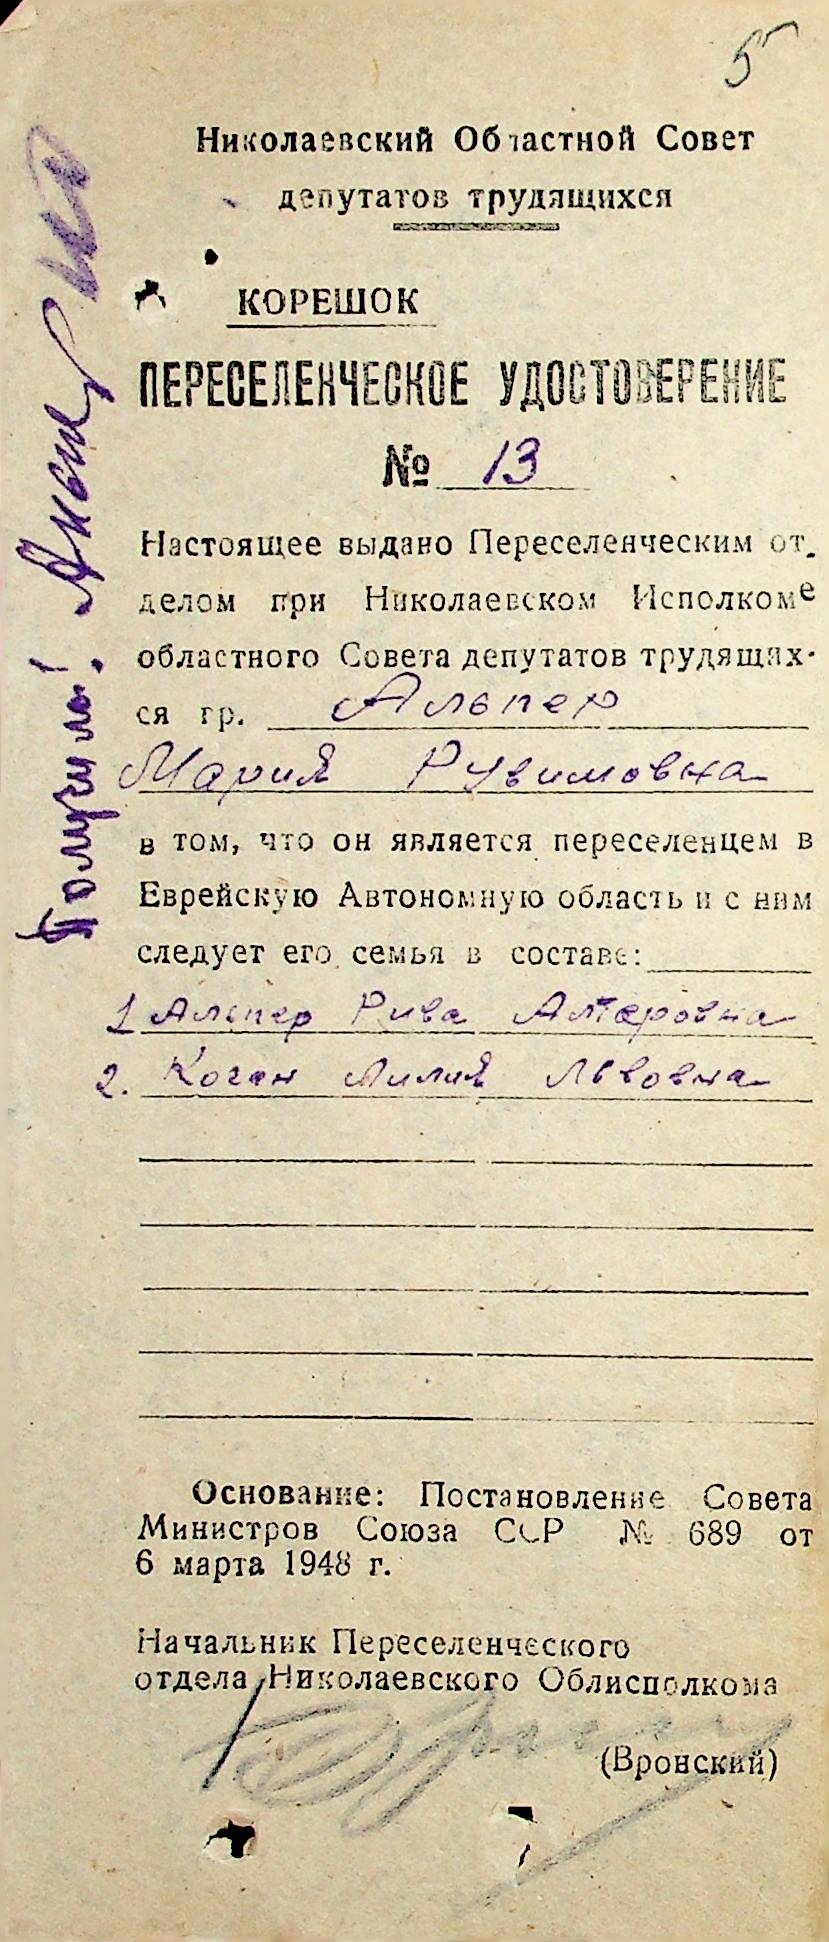 5
Николаевский Областной Совет
депутатов трудящихся
КОРЕШОК
ПЕРЕСЕЛЕНЧЕСКОЕ УДОСТОВЕРЕНИЕ
№ 13
Настоящее выдано Переселенческим от.
делом при Николаевском Исполкоме
областного Совета депутатов трудящих-
ся гр. Альпер
Мария Рувимовна
в том, что он является переселенцем в
Еврейскую Автономную область и с ним
следует его семья в составе:
1 Альпер Рива Алтеровна
2. Коган Лилия Львовна
Основание: Постановление Совета
Министров Союза ССР № 689 от
6 марта 1948 г.
Начальник Переселенческого
отдела Николаевского Облисполкома
(Вронский)
Получила!